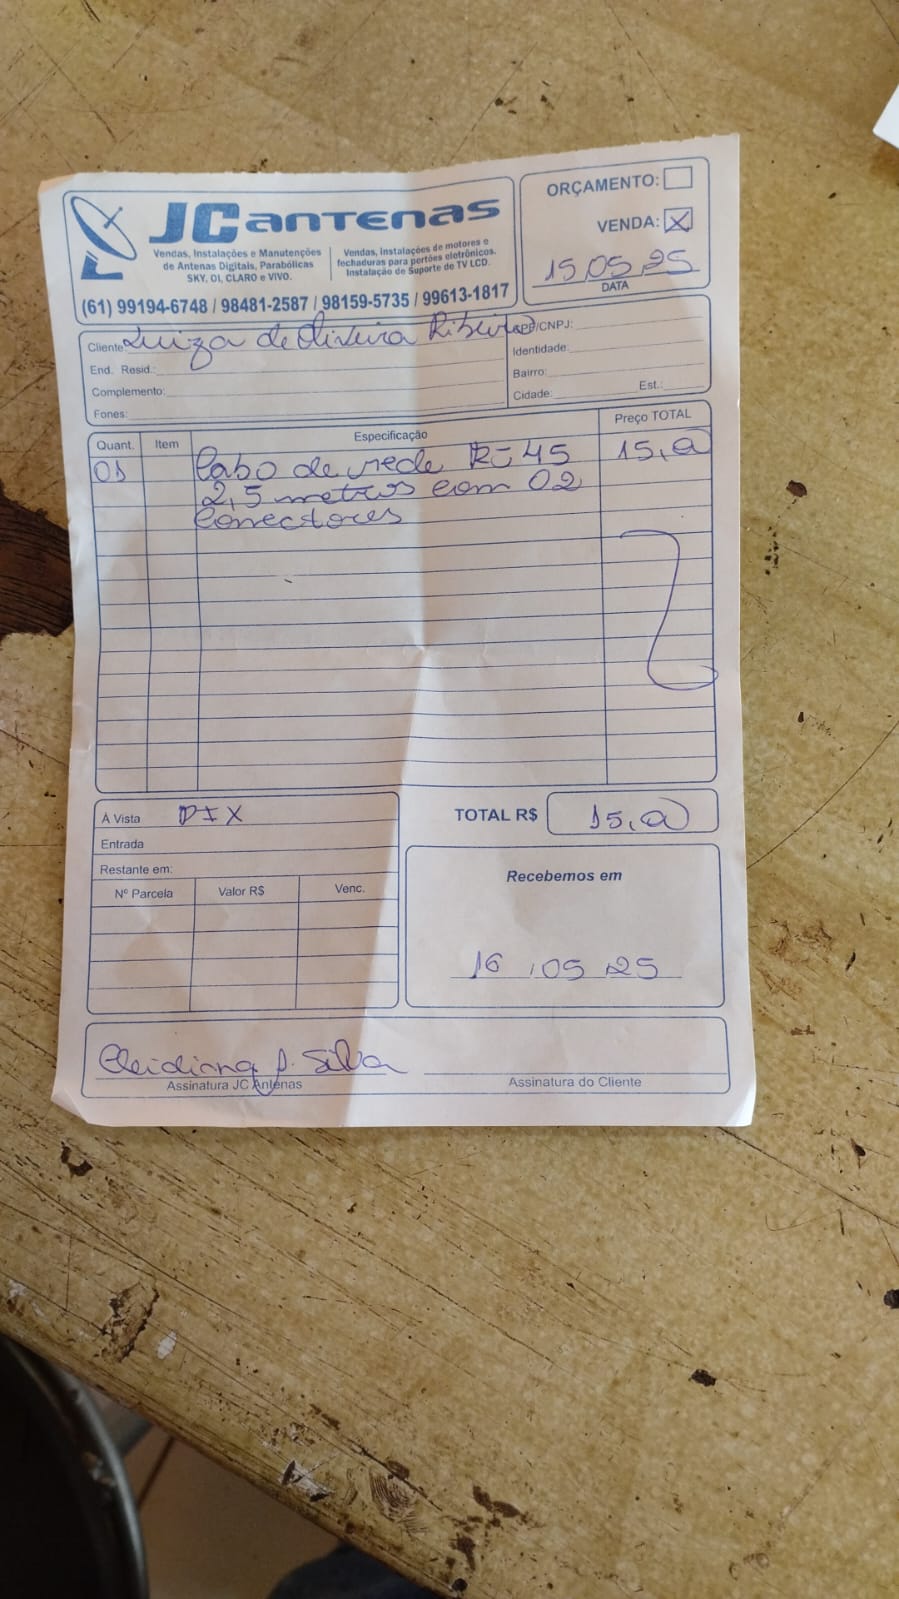 JC antenas
Vendas, Instalações e Manutenções
de Antenas Digitais, Parabólicas
SKY, OI, CLARO e VIVO.
Vendas, Instalações de motores e
fechaduras para portões eletrônicos.
Instalação de Suporte de TV LCD.
(61) 99194-6748 / 98481-2587 / 98159-5735 / 99613-1817
ORÇAMENTO:
VENDA: X
15 05 25
DATA
Cliente: Luiza de Oliveira Ribeiro
End. Resid.:
Complemento:
Fones:
CPF/CNPJ:
Identidade:
Bairro:
Cidade: Est.:
Quant. Item Especificação Preço TOTAL
01 Cabo de rede RJ 45 15,00
2,5 metros com 02
Conectores
À Vista PIX
Entrada
Restante em:
Nº Parcela Valor R$ Venc.
TOTAL R$ 15,00
Recebemos em
16 05 25
Cleidiana P. Silva
Assinatura JC Antenas
Assinatura do Cliente